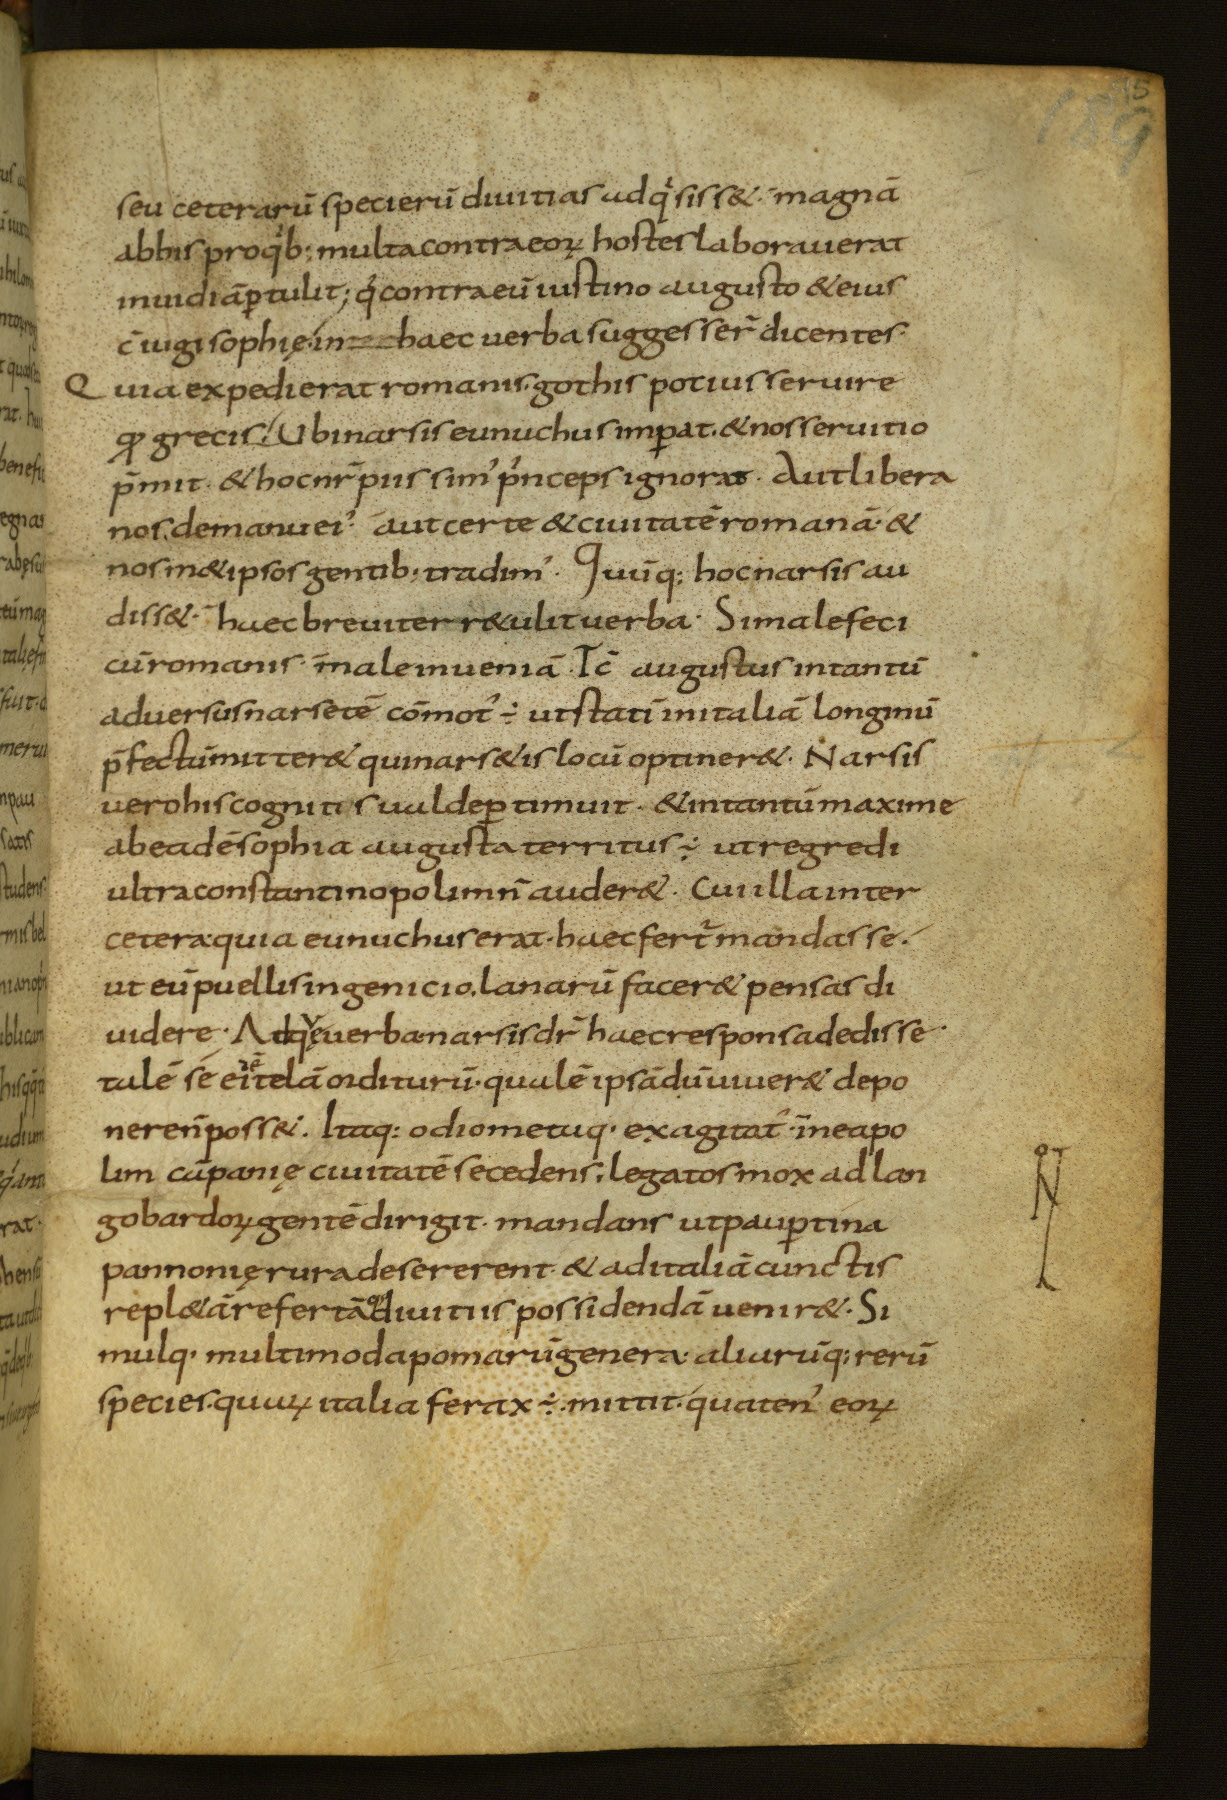 189
95
seu ceterarū specierū diuitias adqͥsiss&. magnā
abhis proqͥb; multa contra eoꝝ hostes laborauerat
inuidiā ꝑtulit; qͥ contra eū iustino augusto & eius
c̄iugi sophię. in haec uerba suggesser̄ dicentes.
Quia expedierat romanis. gothis potius seruire
qͣ̄ grecis. Ubi narsis eunuchus imꝑat. & nos seruitio
p̄mit. & hoc nr̄ piissimꝰ pͥnceps ignorat. Aut libera
nos de manu eiꝰ. aut certe & ciuitatē romanā. &
nosm&ipsos gentib; tradimꝰ. Quūq; hoc narsis au
diss&. haec breuiter r&ulit uerba. Si male feci
cū romanis. male inueniā. Tc̄ augustus intantū
aduersus narsetē cōmotꝰ ÷ ut statī initaliā longinū
p̄fectū mitter& qui nars&is locū optiner&. Narsis
uero his cognitis ualde ꝑtimuit. & intantū maxime
abeadē sophia augusta territus ÷ ut regredi
ultra constantinopolim n̄ auder&. Cui illa inter
cetera quia eunuchus erat. haec fert̄ mandasse.
ut eū puellis ingenicio. lanarū facer& pensas di
uidere. Ad quę uerba narsis dr̄ haec responsa dedisse.
talē sé ei telā orditurū. qualē ipsa dū uiuer& depo
nere n̄ poss&. Itaq; odio metuq. exagitatꝰ. īneapo
lim cāpanię ciuitatē secedens. legatos mox ad lan
gobardoꝝ gentē dirigit. mandans ut pauꝑtina
pannonię rura desererent. & ad italiā cunctis
repl&ā refertā diuitiis possidendā uenir&. Si
mulq. multimoda pomarū genera. aliarūq; rerū
species. quaꝝ italia ferax ÷. mittit. quatenꝰ eoꝝ